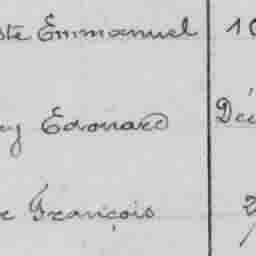 ste Emmanuel 10
y Edouard Déc
François 2